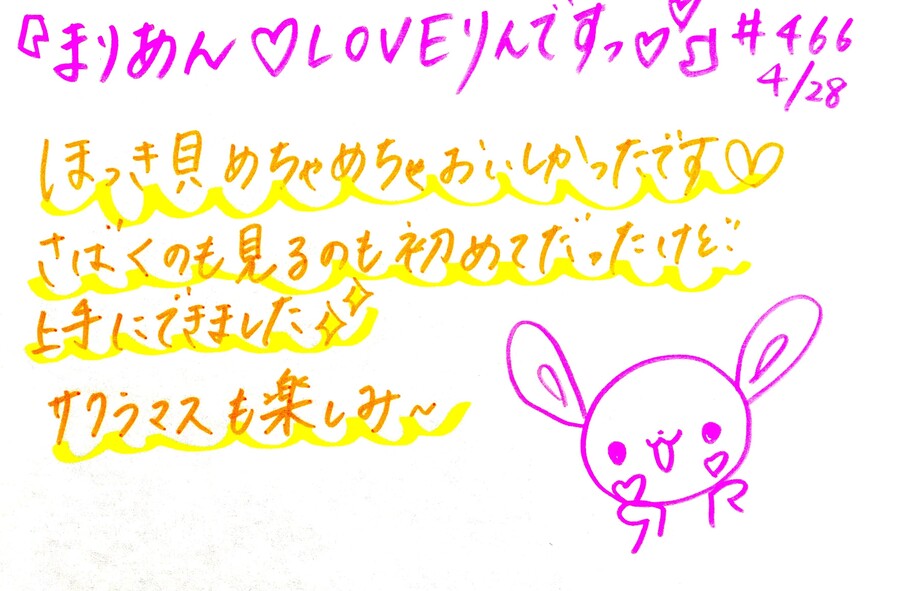 『まりあん♡LOVEりんですっ♡』#466
4/28
ほっき貝めちゃめちゃおいしかったです♡
さばくのも見るのも初めてだったけど
上手にできました
サクラマスも楽しみ~